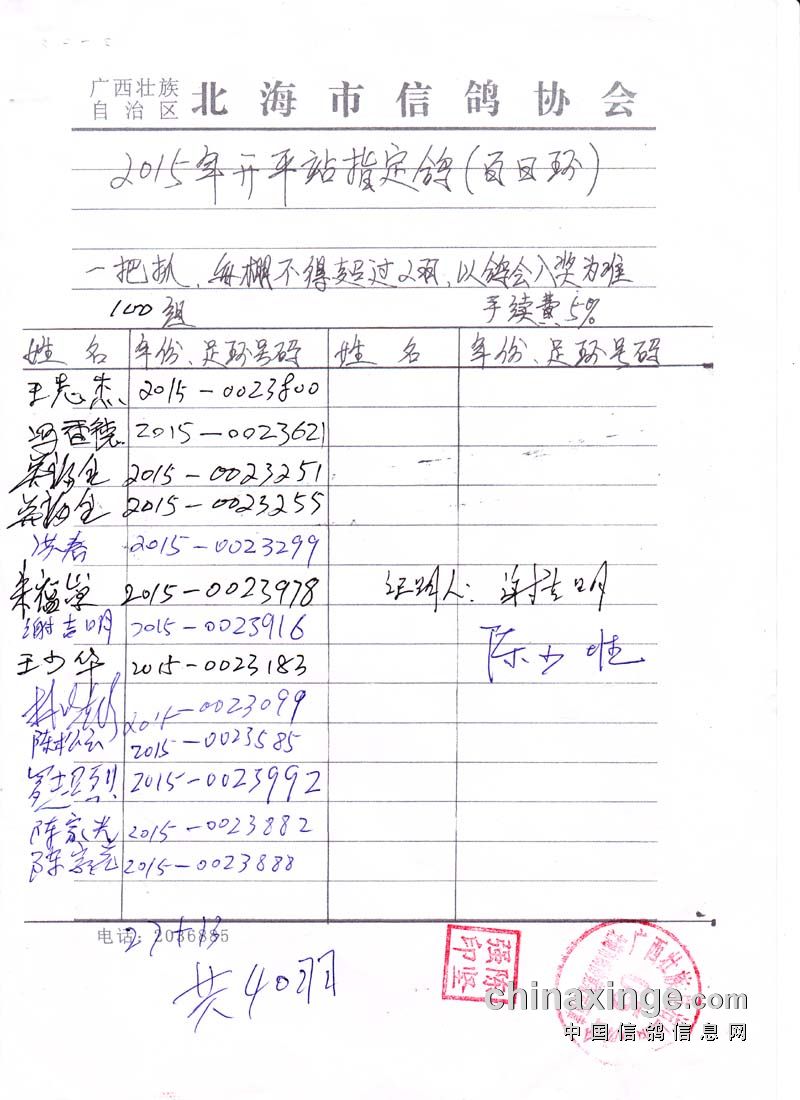 广西壮族
自治区 北海市信鸽协会
2015年开平站指定鸽(百日环)
一把抓,每棚不得超过2羽,以鸽会入奖为准
100组 手续费5%
姓名 年份、足环号码 姓名 年份、足环号码
王志杰 2015-0023800
冯 2015-0023621
2015-0023251
2015-0023255
洪春 2015-0023299
朱福 2015-0023978 经办人:谢吉明
谢吉明 2015-0023916
陈少
王少华 2015-0023183
林 2015-0023099
陈松 2015-0023585
罗 2015-0023992
陈家光 2015-0023882
陈家 2015-0023888
电话:2036885
27+13
共40羽
陈坚强印
广西壮族
chinaxinge.com
中国信鸽信息网